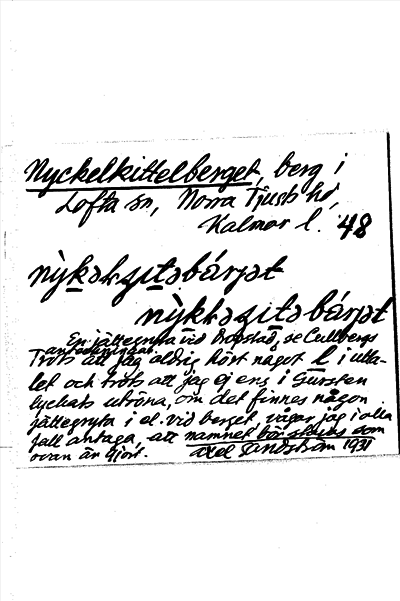 Nyckelkittelberget, berg i
Lofta sn, Norra Tjusts hd,
Kalmar l. 48
nỳkəkɣɪtəbárjət
nỳkkəɣɪtəbárjət
En jättegryta vid se Cullbergs
anteckningar.
Trots att jag aldrig hört något l i utta-
let och trots att jag ej ens i Gursten
lyckats utröna, om det finnes någon
jättegryta i el. vid berget, vågar jag i alla
fall antaga, att namnet bör skrivas som
ovan är gjort. Axel Lindström 1931